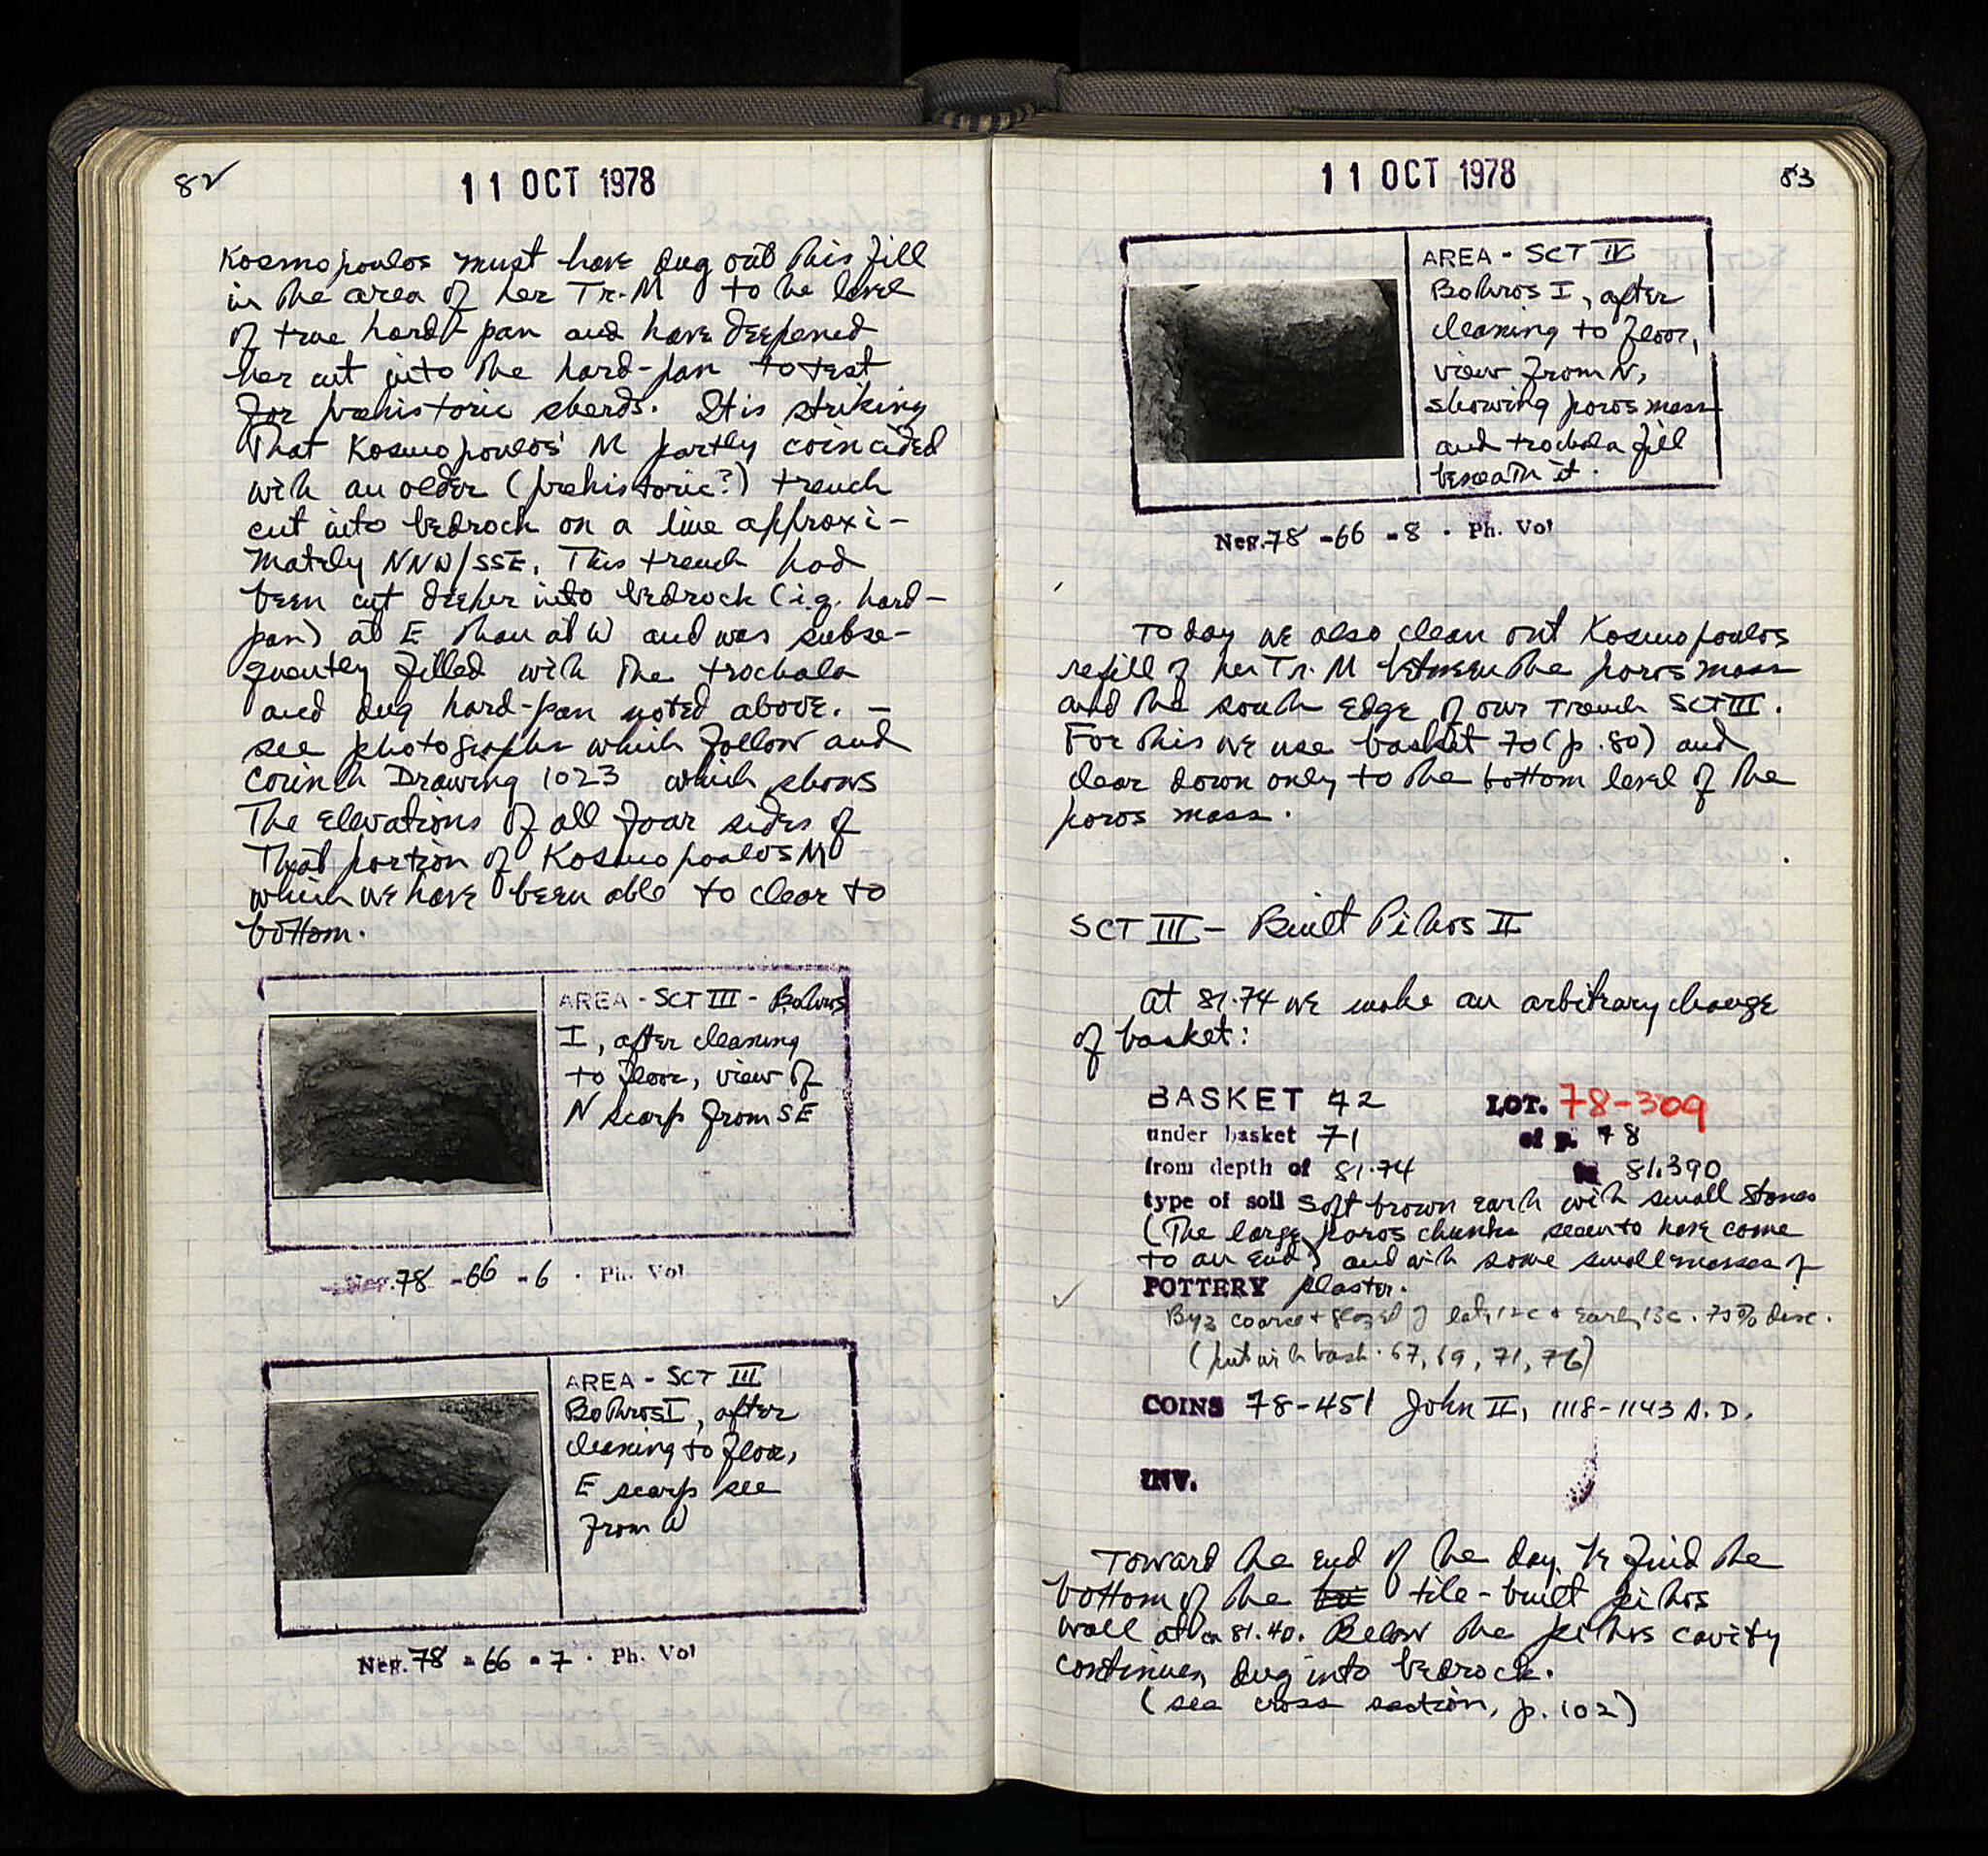 82
11 OCT 1978
Kosmopoulos must have dug out this fill
in the area of her Tr. M to the level
of true hard-pan and have deepened
her cut into the hard-pan to test
for prehistoric sherds. It is striking
that Kosmopoulos' M partly coincided
with an older (prehistoric?) trench
cut into bedrock on a line approxi-
mately NNW/SSE. This trench had
been cut deeper into bedrock (i.q. hard-
pan) at E than at W and was subse-
quently filled with the trochala
and dug hard-pan noted above. —
see photographs which follow and
Corinth Drawing 1023 which shows
the elevations of all four sides of
that portion of Kosmopoulos M
which we have been able to clear to
bottom.
AREA - SCT III - Bothros
I, after cleaning
to floor, view of
N scarp from SE
Neg. 78 - 66 - 6 . Ph. Vol
AREA - SCT III
Bothros I, after
cleaning to floor,
E scarp see
from W
Neg. 78 - 66 - 7 . Ph. Vol
11 OCT 1978
83
AREA - SCT IV
Bothros I, after
cleaning to floor,
view from N,
showing poros mass
and trochala fill
beneath it.
Neg. 78 - 66 - 8 . Ph. Vol
Today we also clean out Kosmopoulos
refill of her Tr. M between the poros mass
and the south edge of our Trench SCT III.
For this we use basket 70 (p. 80) and
clear down only to the bottom level of the
poros mass.
SCT III - Built Pithos II
At 81.74 we make an arbitrary change
of basket:
BASKET 72 LOT. 78-309
under basket 71 of p. 78
from depth of 81.74 81.390
type of soil Soft brown earth with small stones
(The large poros chunks seem to have come
to an end) and with some small masses of
POTTERY plaster.
Byz coarse + glazed of late 12c + early 13c. 75% disc.
(put with bask. 67, 69, 71, 76)
COINS 78-451 John II, 1118-1143 A.D.
INV.
Toward the end of the day we find the
bottom of the tile-built pithos
wall at ca 81.40. Below the pithos cavity
continues, dug into bedrock.
(see cross section, p. 102)